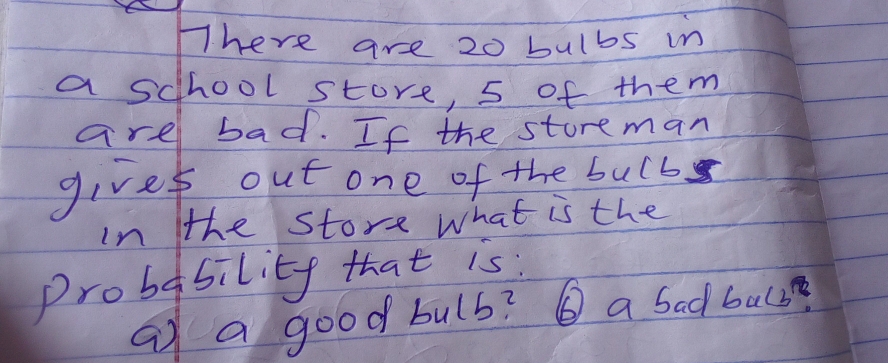 There are 20 bulbs in
a school store, 5 of them
are bad. If the storeman
gives out one of the bulbs
in the store what is the
probability that is:
a) a good bulb? ⓑ a bad bulb?